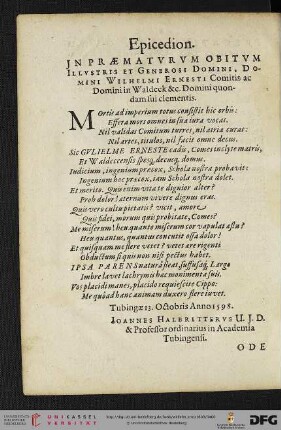 Epicedion.
IN PRÆMATVRVM OBITVM
ILLVSTRIS ET GENEROSI DOMINI, DO-
MINI WILHELMI ERNESTI Comitis ac
Domini in Waldeck &c. Domini quon-
dam sui clementis.
MOrtis ad imperium totus consistit hic orbis:
Effera mors omnes in sua iura vocat.
Nil validas Comitum turres, nil atria curat:
Nil artes, titulos, nil facit omne decus.
Sic GVLIELME ERNESTE cadis, Comes inclyte matris,
Et Waldeccensis spes, decusq, domus.
Iudicium, ingenium præcox, Schola nostra probavit:
Ingenium hoc præcox, iam Schola nostra dolet.
Et merito. Quis enim vita te dignior alter?
Proh dolor! æternum vivere dignus eras.
Quis vero cultu pietatis? vicit, amore
Quis fidei, morum quis probitate, Comes?
Me miserum! heu quanto miserum cor vapulat æstu?
Heu quantus, quantus concutit ossa dolor!
Et quisquam me flere vetet? vetet are rigenti
Obductum si quis non nisi pectus habet.
IPSA PARENS natura fleat, suffusaq, Largo
Imbre lavet lachrymis hæc monimenta suis.
Vos placidi manes, placido requiescite Cippo:
Me quoad hanc animam duxero flere iuvet.
Tubingæ 13. Octobris Anno 1598.
IOANNES HALBRITTERVS U. J. D.
& Professor ordinarius in Academia
Tubingensi.
ODE
UNIVERSITÄTS-BIBLIOTHEK HEIDELBERG
UNIKASSEL VERSITÄT
DFG